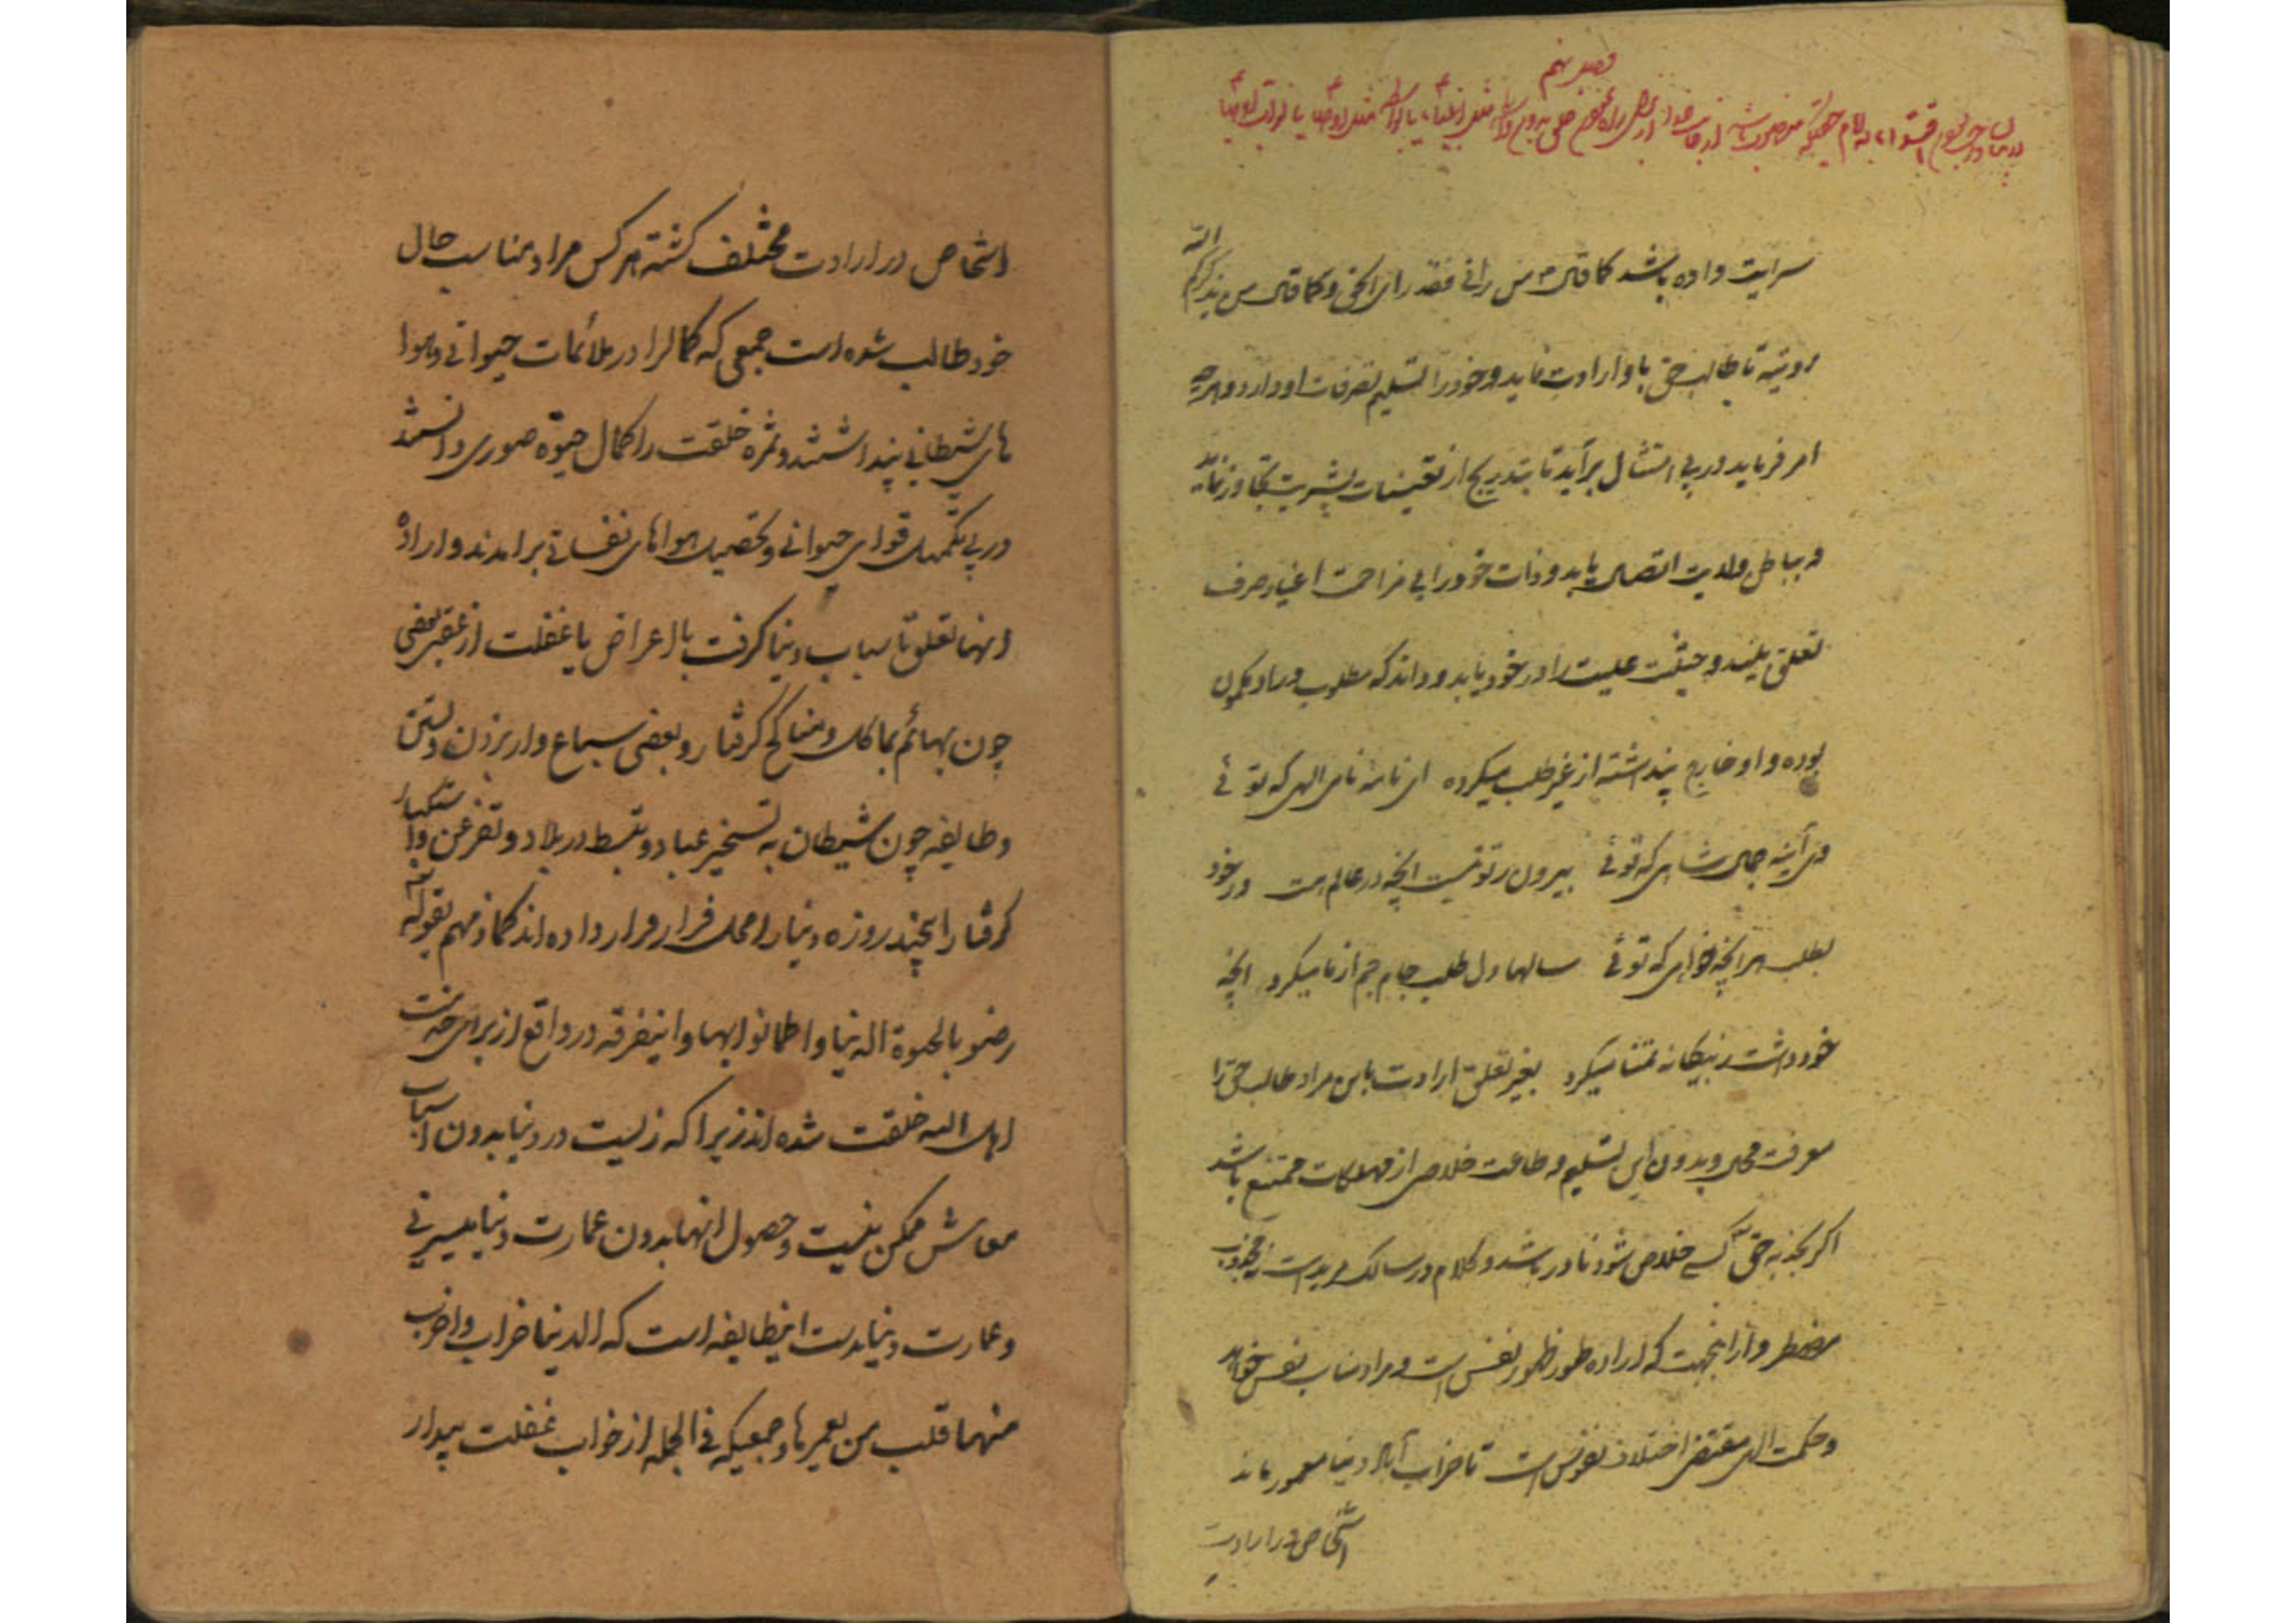 فصل نهم
سرایت داده باشد کما قال ص من رانی فقد رای الحق و کما قال من یذکرکم الله
رویته تا طالب حق باو ارادت نماید و خود را تسلیم تصرفات او دارد و هرچه
امر فرماید در پی امتثال برآید تا بتدریج از تعینات بشریت تجاوز نماید
و بباطن ولایت اتصال یابد و ذات خود را بی مزاحمت اغیار صرف
تعلق بیند و حیثیت علیت را در خود یابد و داند که مطلوب در او مکمون
بوده و او خارج پنداشته از غیر طلب میکرده ای نامه نامی الهی که توئی
وی آینه جمال شاهی که توئی بیرون ز تو نیست انچه در عالم هست در خود
بطلب هر انچه خواهی که توئی سالها دل طلب جام جم از ما میکرد انچه
خود داشت ز بیکانه تمنا میکرد بغیر تعلق ارادت باین مراد طالب حق را
معرفت محال و بدون این تسلیم و طاعت خلاصی از مهلکات ممتنع باشد
اکر بجذبه حق کسی خلاص شود نادر باشد و کلام در سالک مرید است نه مجذوب
مضطر و از اینجهت که اراده طور ظهور نفس است و مراد مناسب نفس خواهد
و حکمت الهی مقتضی اختلاف نفوس است تا خراب آباد دنیا معمور ماند
اشخاص در ارادت
اشخاص در ارادت مختلف کشته هر کس مراد مناسب حال
خود طالب شده است جمعی که کمالرا در ملائمات حیوانی و هوا
های شیطانی پنداشتند و ثمره خلقت را کمال حیوة صوری دانستند
در پی تکمیل قوای حیوانی و تحصیل هواهای نفسانی برامدند و اراده
اینها تعلق باسباب دنیا کرفت با اعراض یا غفلت از عقبی بعضی
چون بهائم بماکل و مناکح کرفتار و بعضی سباع وار بزدن و بستن
و طایفه چون شیطان به تسخیر عباد و تسلط در بلاد و تفرعن و استکبار
کرفتار اینچند روزه دنیا را محل قرار قرار داده اند کما ذمهم بقوله تعه
رضو بالحیوة الدنیا و اطمانوا بها و اینفرقه در واقع از برای خدمت
اهل الله خلقت شده اند زیرا که زیست در دنیا بدون اسباب
معاش ممکن نیست و حصول اینها بدون عمارت دنیا میسر نی
و عمارت دنیا بدست اینطایفه است که الدنیا خراب و اخرب
منها قلب من یعمرها و جمعیکه فی الجمله از خواب غفلت بیدار